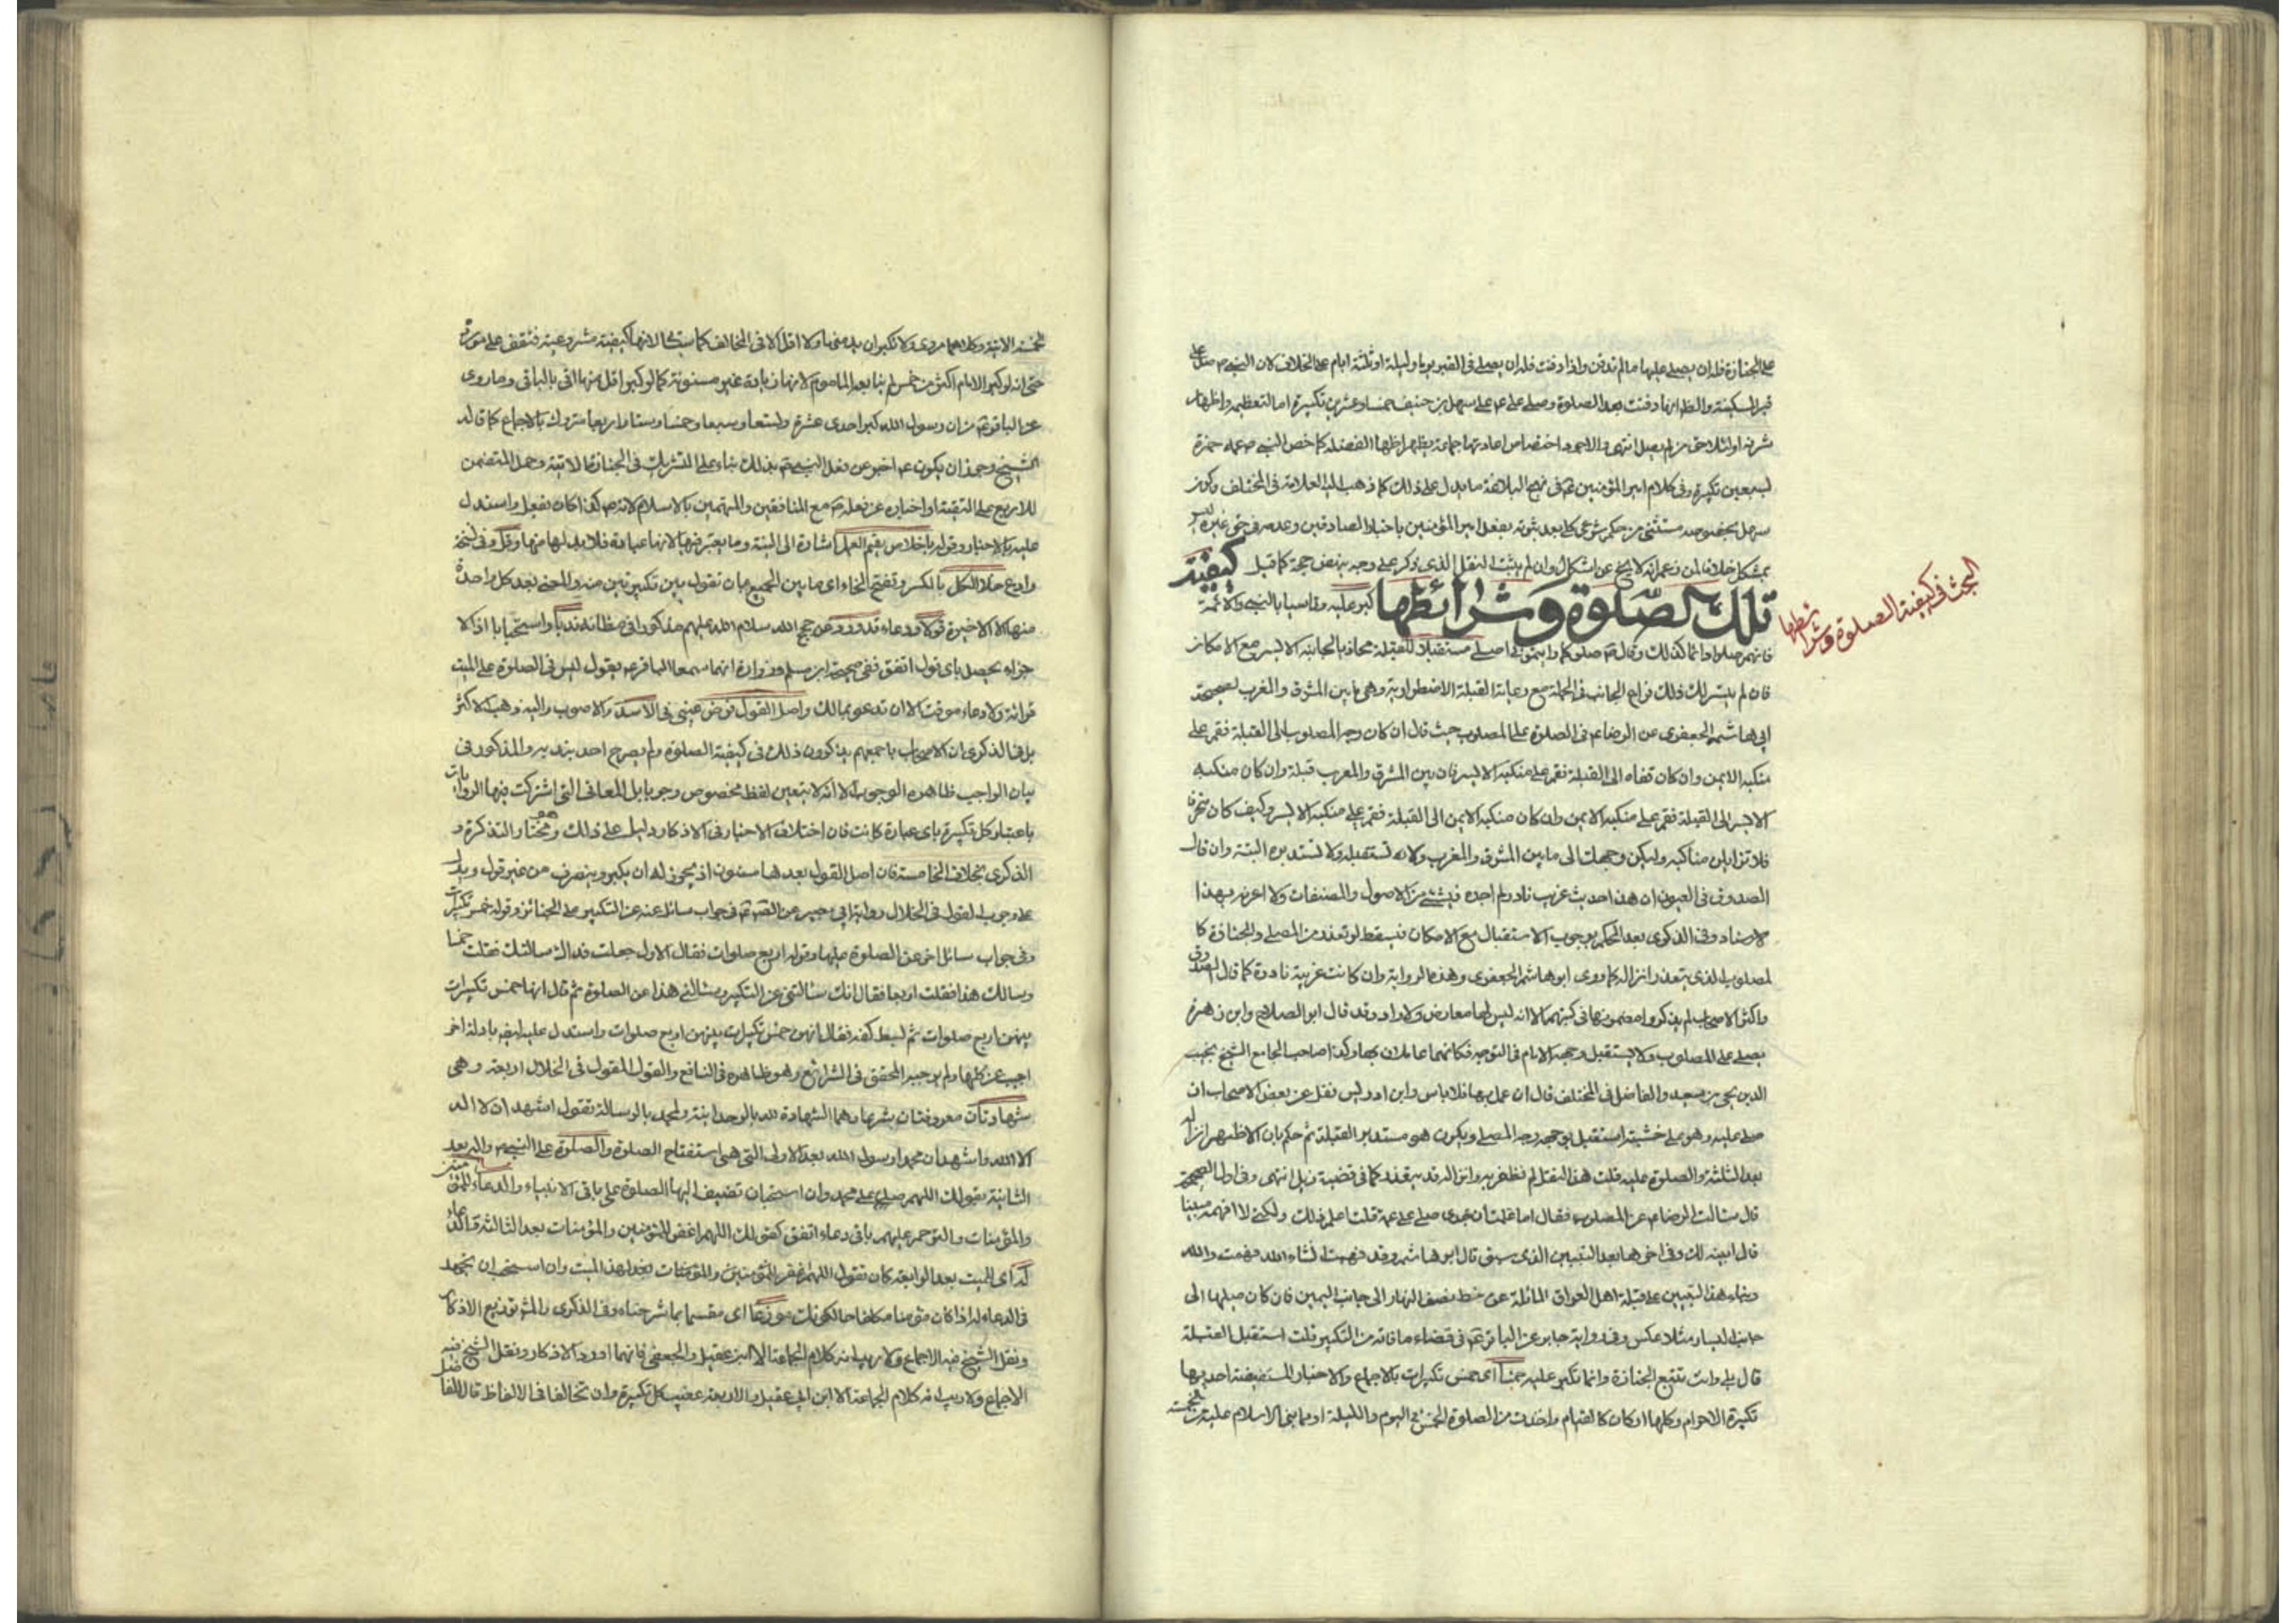 على الجنازة فله ان يصلى عليها ما لم تدفن واذا دفنت فله ان يصلى فى القبر يوما وليلة او ثلثة ايام على الخلاف لان النبى ص صلى على
قبر المسكينة والظ انها دفنت بعد الصلوة وصلى على ع على سهل بن حنيف خمسا وعشرين تكبيرة اما لتعظيمه واظهار
شرفه او لتلاحق من لم يصل انتهى واختصاص اعادتها جماعة كما خص النبى ص عمه حمزة
بسبعين تكبيرة وفى كلام امير المؤمنين ع فى نهج البلاغة ما يدل على ذلك كما ذهب اليه العلامة فى المختلف وكون
سهل بخصوصه مستثنى من حكم شرعى كلى بعد ثبوته بفعل امير المؤمنين باخبار الصادقين وعدمه فى حق غيره ليس
بمشكل خلافا لمن زعم انه لا يخ عن اشكال وان لم يثبت النقل الذى ذكر على وجه ينهض حجة كما قيل كيفية
تلك الصلوة وشرائطها كبر عليه وقاسيا بالنبى والائمة
البحث فى كيفية الصلوة وشرائطها
فانهم صلوا دائما كذلك وقال ص صلوا كما رايتمونى اصلى مستقبلا للقبلة محاذيا لجانبه الايسر مع الامكان
فان لم يتيسر لك ذلك فراع الجانب فى الجملة مع رعاية القبلة الاضطرارية وهى ما بين المشرق والمغرب لصحيحة
ابى هاشم الجعفرى عن الرضا ع فى الصلوة على المصلوب حيث قال ان كان وجه المصلوب الى القبلة فقم على
منكبه الايمن وان كان قفاه الى القبلة فقم على منكبه الايسر فان بين المشرق والمغرب قبلة وان كان منكبه
الايسر الى القبلة فقم على منكبه الايمن وان كان منكبه الايمن الى القبلة فقم على منكبه الايسر وكيف كان منحرفا
فلا تزايلن مناكبه وليكن وجهك الى ما بين المشرق والمغرب ولا تستقبله ولا تستدبره البتة وان قال
الصدوق فى العيون ان هذا حديث غريب نادر لم اجده فى شئ من الاصول والمصنفات ولا اعرفه بهذا
الاسناد وفى الذكرى بعد الحكم بوجوب الاستقبال مع الامكان فيسقط لو تعذر من المصلى والجنازة كا
لمصلوب الذى يتعذر انزاله كما روى ابو هاشم الجعفرى وهذه الرواية وان كانت غريبة نادرة كما قال الصدوق
واكثر الاصحاب لم يذكروا مضمونها فى كتبهم الا انه ليس لها معارض ولا راد وقد قال ابو الصلاح وابن زهرة
يصلى على المصلوب ولا يستقبل وجهه الامام فى التوجه فكانهما عاملان بها وكذا صاحب الجامع الشيخ نجيب
الدين يحيى بن سعيد والفاضل فى المختلف قال ان عمل بها فلا باس وابن ادريس نقل عن بعض الاصحاب ان
صلى عليه وهو على خشبته استقبل بوجهه وجه المصلى ويكون هو مستدبر القبلة ثم حكم بان الاظهر انزاله
بعد الثلثة والصلوة عليه قلت هذا النقل لم نظفر به وانزاله قد يتعذر كما فى قضية زيد انتهى وفى اول الصحيحة
قال سالت الرضا ع عن المصلوب فقال اما علمت ان جدى صلى على عمه قلت اعلم ذلك ولكنى لا افهمه مبينا
قال ابينه لك وفى اخرها بعد التبيين الذى سبق قال ابو هاشم وقد فهمت انشاء الله فهمت والله
وبناء هذا التبيين على قبلة اهل العراق المائلة عن خط نصف النهار الى جانب اليمين فان كان ميلها الى
جانب اليسار مثلا عكس وفى رواية جابر عن الباقر ع فى قضاء ما فاته من التكبير قلت استقبل القبلة
قال بلى وانت تتبع الجنازة وانما تكبر عليه خمسا اى خمس تكبيرات بالاجماع والاخبار المستفيضة احديها
تكبيرة الاحرام وكلها اركان كالقيام واخذت من الصلوة الخمس فى اليوم والليلة او مما بنى الاسلام عليه من الخمسة
حتى انه لو كبر الامام اكثر من خمس لم يتابعه الماموم لانها زيادة غير مسنونة كما لو كبر اقل منها اتى بالباقى وما روى
عن الباقر ع من ان رسول الله كبر احدى عشرة وتسعا وسبعا وخمسا وستا واربعا متروك بالاجماع كما قاله
الشيخ وجوز ان يكون ع اخبر عن فعل النبى ص بذلك بناء على التشريك فى الجنازة الاتية وحمل المتضمن
للاربع على التقية او اخباره عن فعله ص مع المنافقين والمتهمين بالاسلام لانه ص كذا كان يفعل واستدل
عليه بالاخبار وقوله باخلاص يقيم العمل اشارة الى النية وما يعتبر فيها لانها عبادة فلا بد لها منها وقل وفى نسخة
وادع خلال الكل بالكسر وتفتح الخاء اى ما بين الجميع بان تقول بين تكبيرتين منه والمعنى بعد كل واحدة
منها الا الاخيرة قولا ودعاء قد ورد عن حجج الله سلام الله عليهم مذكورا فى مظانه ندبا واستحبابا اذ الا
جزاء يحصل باى قول اتفق ففى صحيحة ابن مسلم وزرارة انهما سمعا الباقر ع يقول ليس فى الصلوة على الميت
قرائة ولا دعاء موقت الا ان تدعو بما لك واصل القول فرض عينى فى الاسد والاصوب واليه ذهب الاكثر
بل فى الذكرى ان الاصحاب باجمعهم يذكرون ذلك فى كيفية الصلوة ولم يصرح احد بندبه والمذكور فى
بيان الواجب ظاهره الوجوب الا انه لا يتعين لفظ مخصوص وجوبا بل المعانى التى اشتركت فيها الروايات
باعتبار كل تكبيرة باى عبارة كانت فان اختلاف الاخبار فى الاذكار دليل على ذلك وهو مختار التذكرة و
الذكرى بخلاف الخامسة فان اصل القول بعدها مسنون اذ يجوز له ان يكبر وينصرف من غير قول ويدل
على وجوب القول فى الخلال رواية ابى بصير عن الص ع فى جواب سائل عنه عن التكبير على الجنائز وقوله خمس تكبيرات
وفى جواب سائل اخر عن الصلوة عليها وقوله اربع صلوات فقال الاول جعلت فداك سالتك فقلت خمسا
وسالك هذا فقلت اربعا فقال انك سئالتنى عن التكبير وسئالنى هذا عن الصلوة ثم قال انها خمس تكبيرات
بينهن اربع صلوات ثم بسط كفه فقال انهن خمس تكبيرات بينهن اربع صلوات واستدل عليه ايضا بادلة اخر
اجيب عن كلها ولم يوجبه المحقق فى الشرائع وهو ظاهره فى النافع والقول المقول فى الخلال اربعة وهى
شهادتان معروفتان بشرها وهما الشهادة لله بالوحدانية ولمحمد بالرسالة تقول اشهد ان لا اله
الا الله واشهد ان محمدا رسول الله بعد الاولى التى هى استفتاح الصلوة والصلوة على النبى ص واله بعد
الثانية بقولك اللهم صل على محمد وان استحبان تضيف اليها الصلوة على باقى الانبياء والدعاء للمؤمنين
والمؤمنات والترحم عليهم باى دعاء اتفق كقولك اللهم اغفر للمؤمنين والمؤمنات بعد الثالثة والدعاء
له اى للميت بعد الرابعة كان تقول اللهم اغفر للمؤمنين والمؤمنات لهذا الميت وان استحب ان يجهد
فى الدعاء له اذا كان مؤمنا مكلفا حالكونك موزعا اى مقسما بما شرحناه وفى الذكرى والمش توزيع الاذكار
ونقل الشيخ فيه الاجماع ولا ريب انه كلام الجماعة الا ابن عقيل والجعفى فانهما اوردا الاذكار ونقل الشيخ فيه
الاجماع ولا ريب انه كلام الجماعة الا ابن ابى عقيل والاربعة عقيب كل تكبيرة وان تخالفا فى الالفاظ قال الفاضل